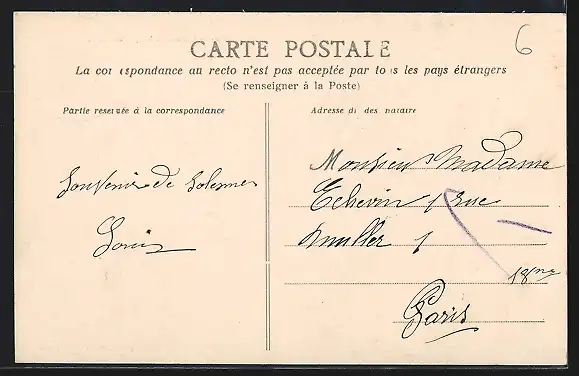 6
CARTE POSTALE
La correspondance au recto n'est pas acceptée par tous les pays étrangers
(Se renseigner à la Poste)
Partie reservée à la correspondance
Adresse du destinataire
Souvenir de Solesmes
Louis
Monsieur Madame
Echevin 1 rue
Muller 1
18me
Paris